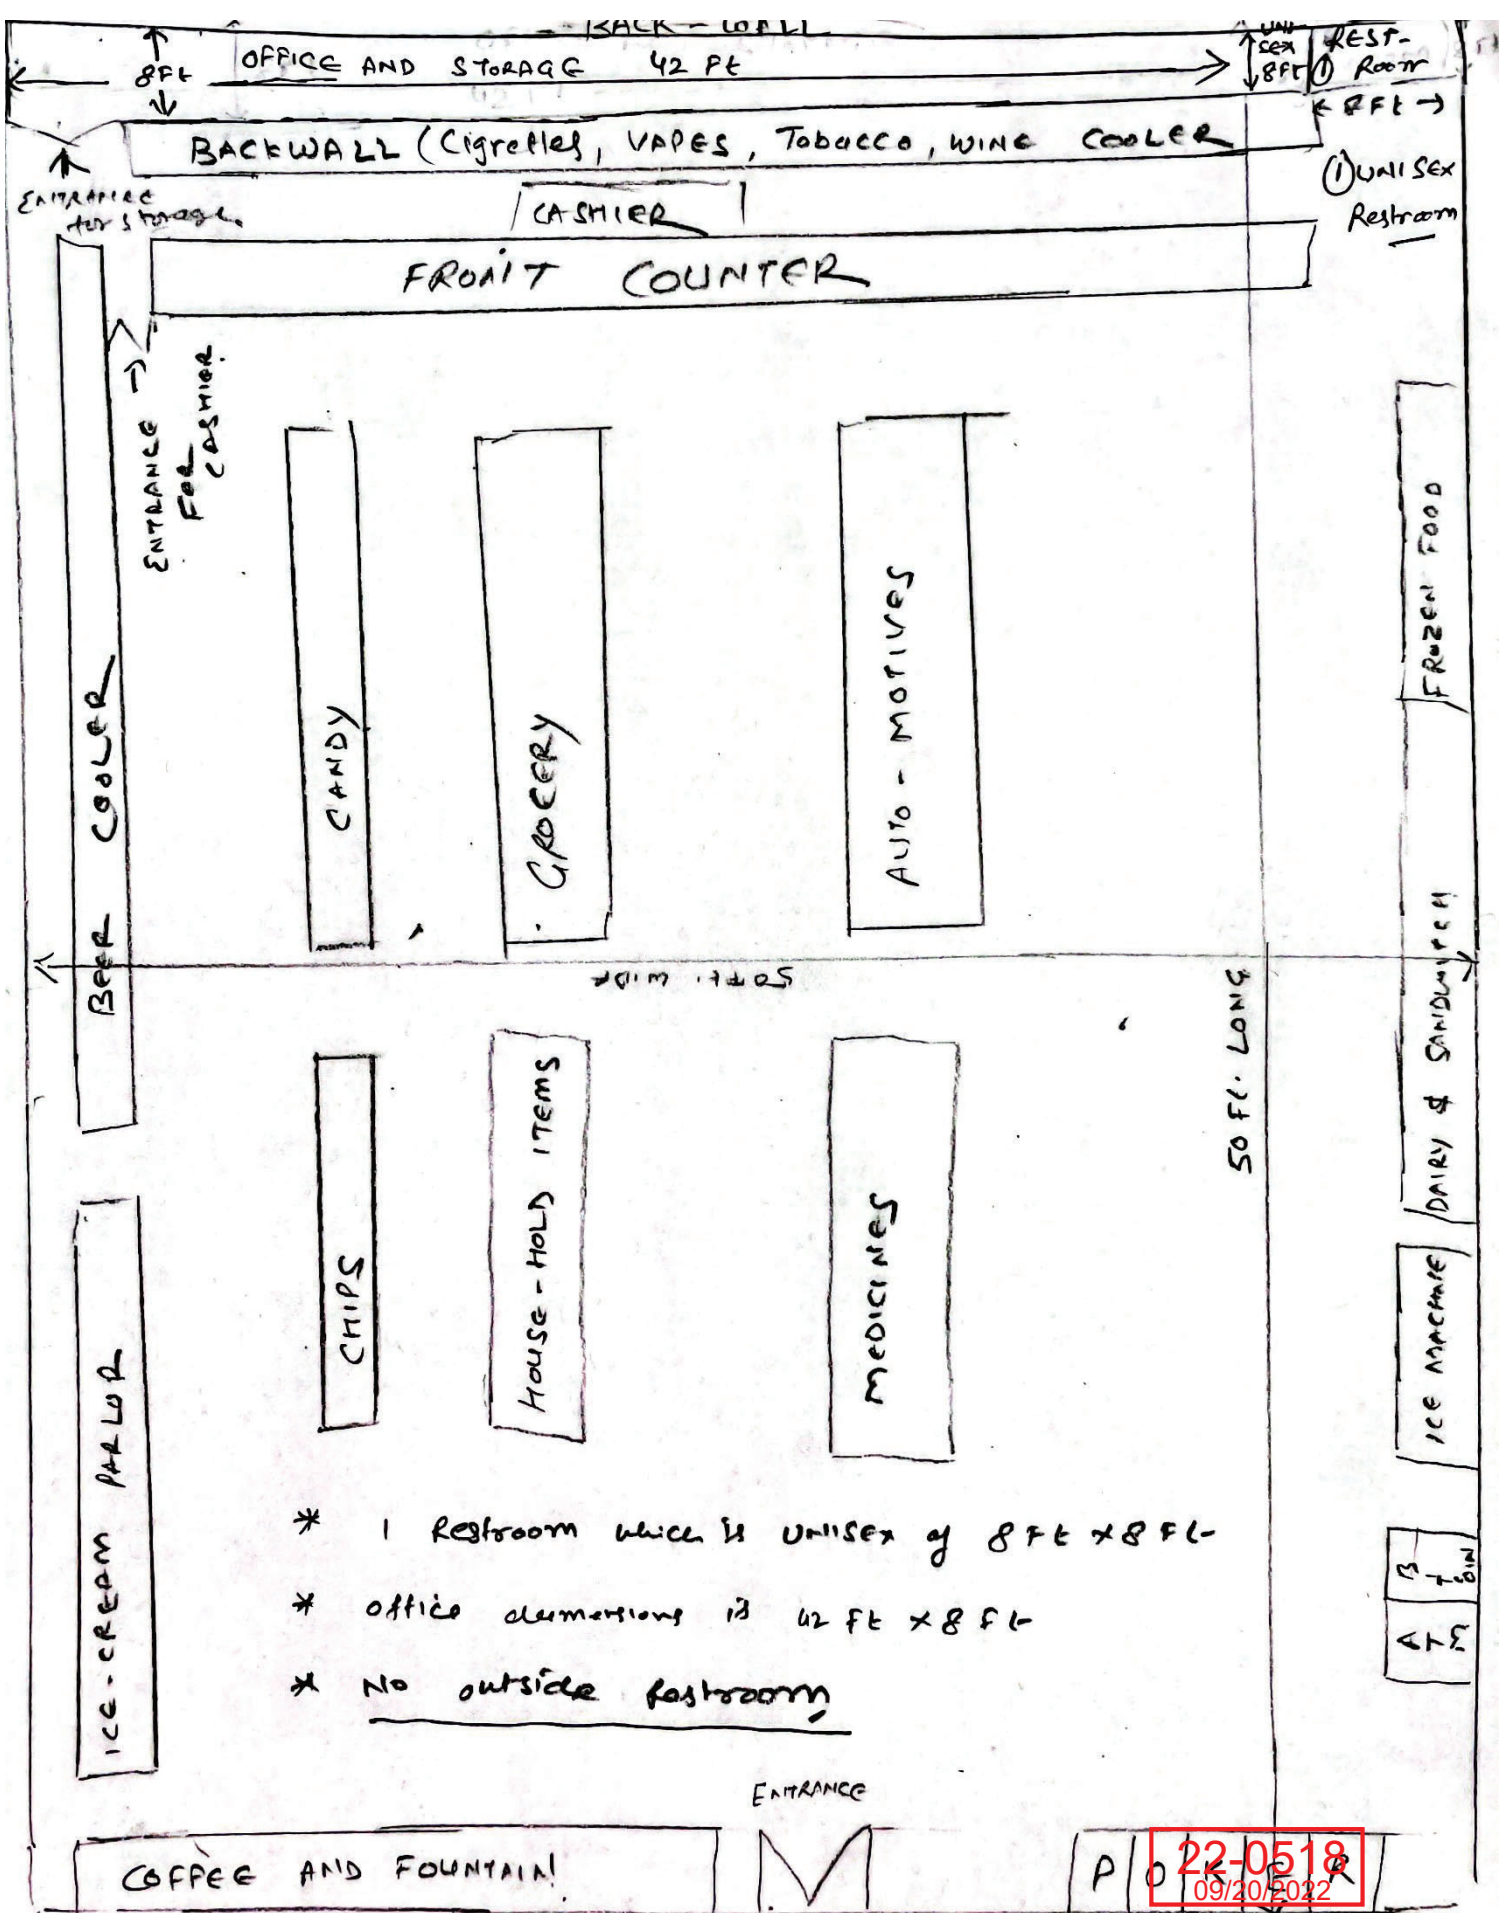 BACK - WALL
OFFICE AND STORAGE 42 Ft
8Ft
UNI
SEX
8Ft
REST-
① Room
8Ft
BACKWALL (Cigrettes, VAPES, Tobacco, WINE COOLER
① UNISEX
Restroom
ENTRANCE
for storage
CASHIER
FRONT COUNTER
ENTRANCE →
FOR
CASHIER
BEER COOLER
CANDY
GROCERY
AUTO - MOTIVES
FROZEN FOOD
50 Ft. WIDE
50 Ft. LONG
DAIRY & SANDWITCH
CHIPS
HOUSE - HOLD ITEMS
MEDICINES
ICE MACHINE
ICE - CREAM PARLOR
* 1 Restroom which is UNISEX of 8 Ft x 8 Ft
* office dimensions is 42 Ft x 8 Ft
* No outside Restroom
B
COIN
ATM
ENTRANCE
COFFEE AND FOUNTAIN
POKER
22-0518
09/20/2022